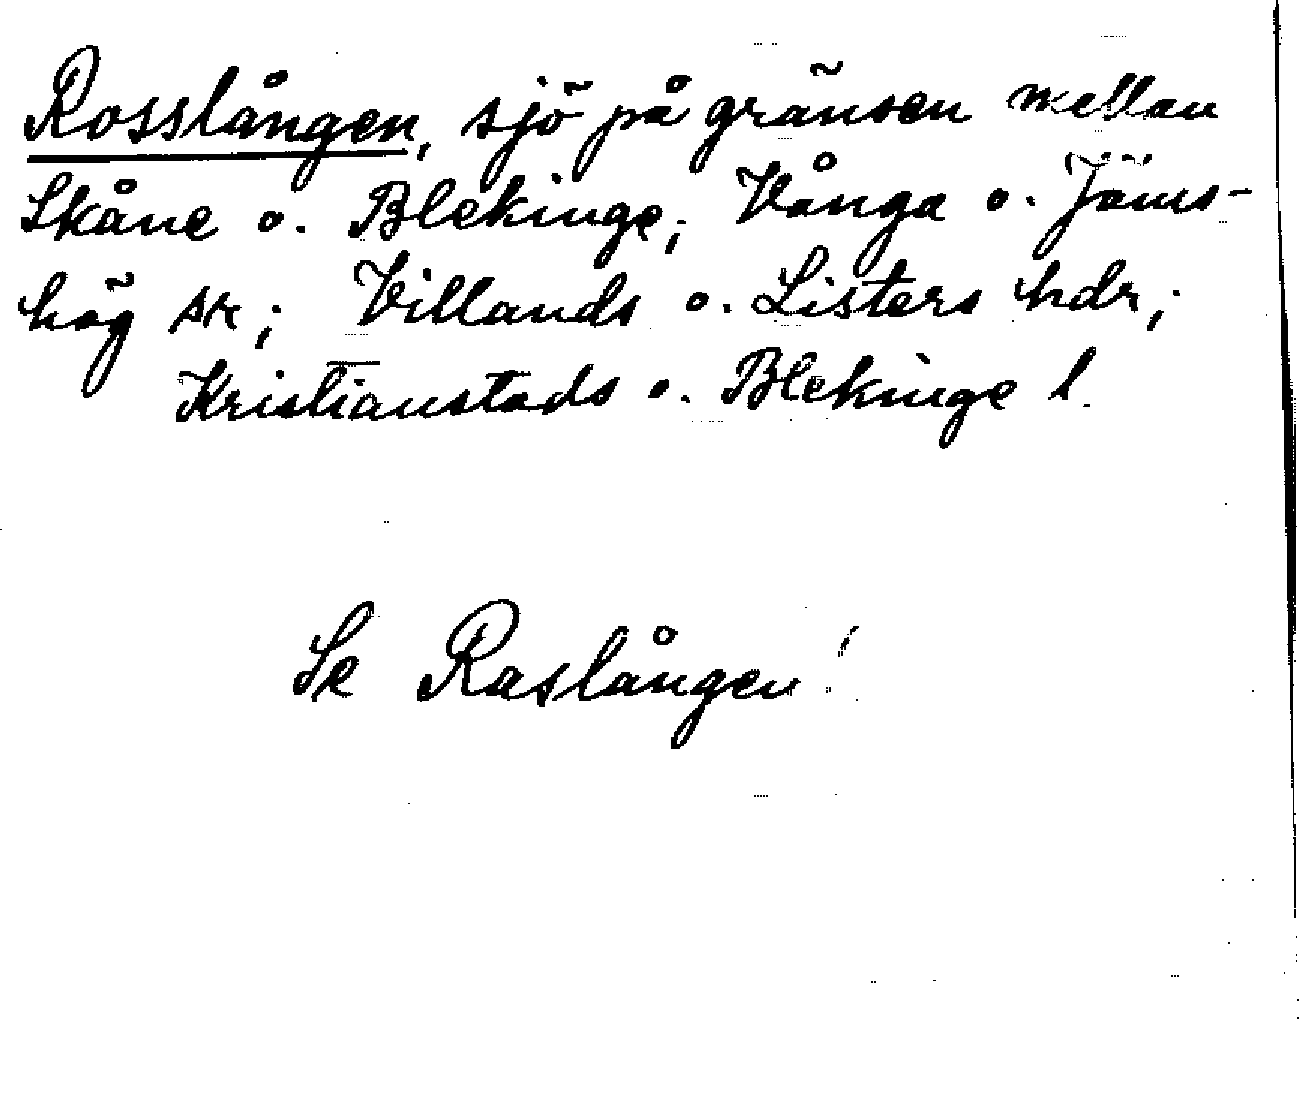 Rosslången, sjö på gränsen mellan
Skåne o. Blekinge; Vånga o. Jäms-
hög sk; Villands o. Listers hdr;
Kristianstads o. Blekinge l.
Se Raslången!